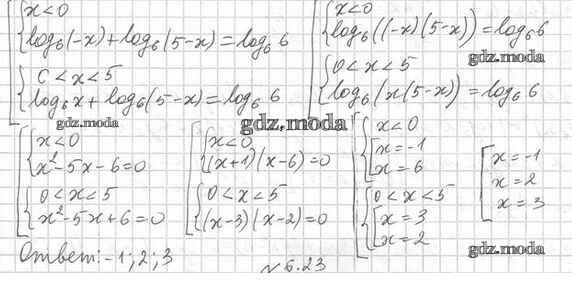 [ { x < 0
log₆(-x) + log₆(5-x) = log₆ 6
{ 0 < x < 5
log₆ x + log₆(5-x) = log₆ 6
[ { x < 0
log₆((-x)(5-x)) = log₆ 6
{ 0 < x < 5
log₆(x(5-x)) = log₆ 6
gdz.moda
gdz.moda
gdz.moda
[ { x < 0
x² - 5x - 6 = 0
{ 0 < x < 5
x² - 5x + 6 = 0
[ { x < 0
(x+1)(x-6) = 0
{ 0 < x < 5
(x-3)(x-2) = 0
[ { x < 0
[ x = -1
x = 6
{ 0 < x < 5
[ x = 3
x = 2
[ x = -1
x = 2
x = 3
gdz.moda
Ответ: -1; 2; 3
№ 6.23